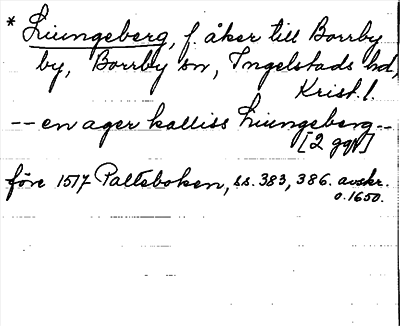 * Liungeberg, f. åker till Borrby
by, Borrby sn, Ingelstads hd,
Krist. l.
-- en ager kalliss Liungeberg --
[2 ggr]
före 1517 Paltsboken, ss. 383, 386. avskr.
o. 1650.